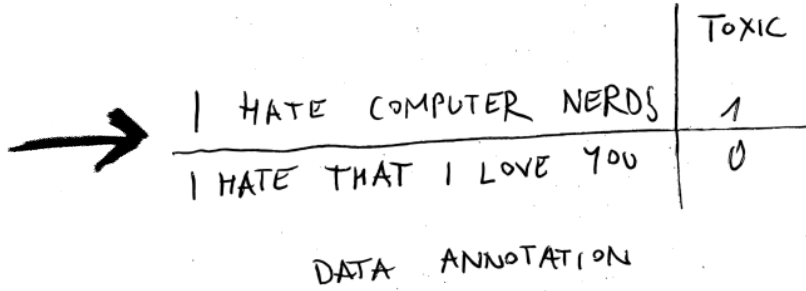 TOXIC
I HATE COMPUTER NERDS 1
I HATE THAT I LOVE YOU 0
DATA ANNOTATION